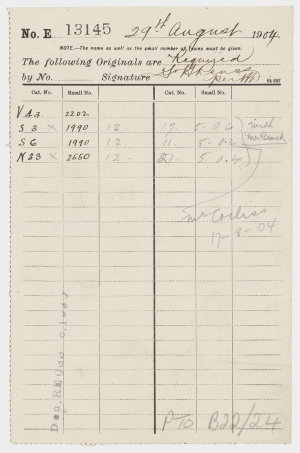 No. E 13145 29th August 1904
NOTE.—The name as well as the small number of items must be given.
The following Originals are Required
by No. Signature
Cat. No. Small No. Cat. No. Small No.
V A3 2202
S 3 × 1990 12 17 5.04 with
S 6 1990 12 11 5.04 Mr Beach
M 23 × 2650 12 21. 5.04
Mr Corliss
17-8-04
PTO B22/24